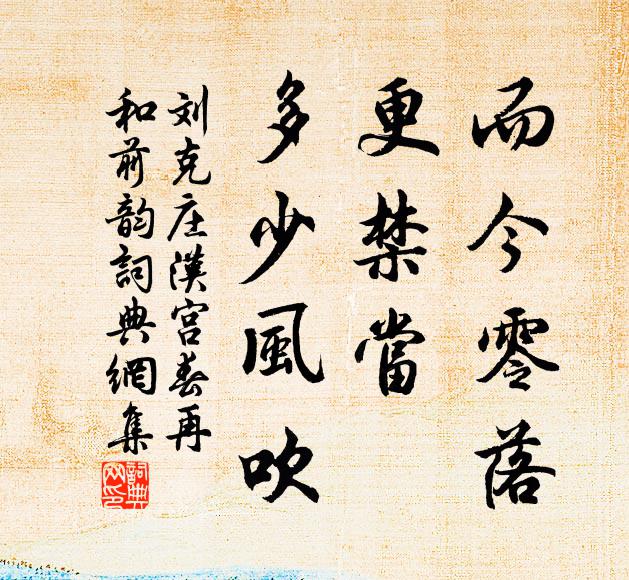 而今零落
更禁當
多少風吹
刘克庄漢宮春再
和前韵詞典網集
詞典
网印